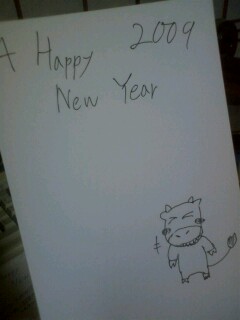 A Happy 2009
New Year